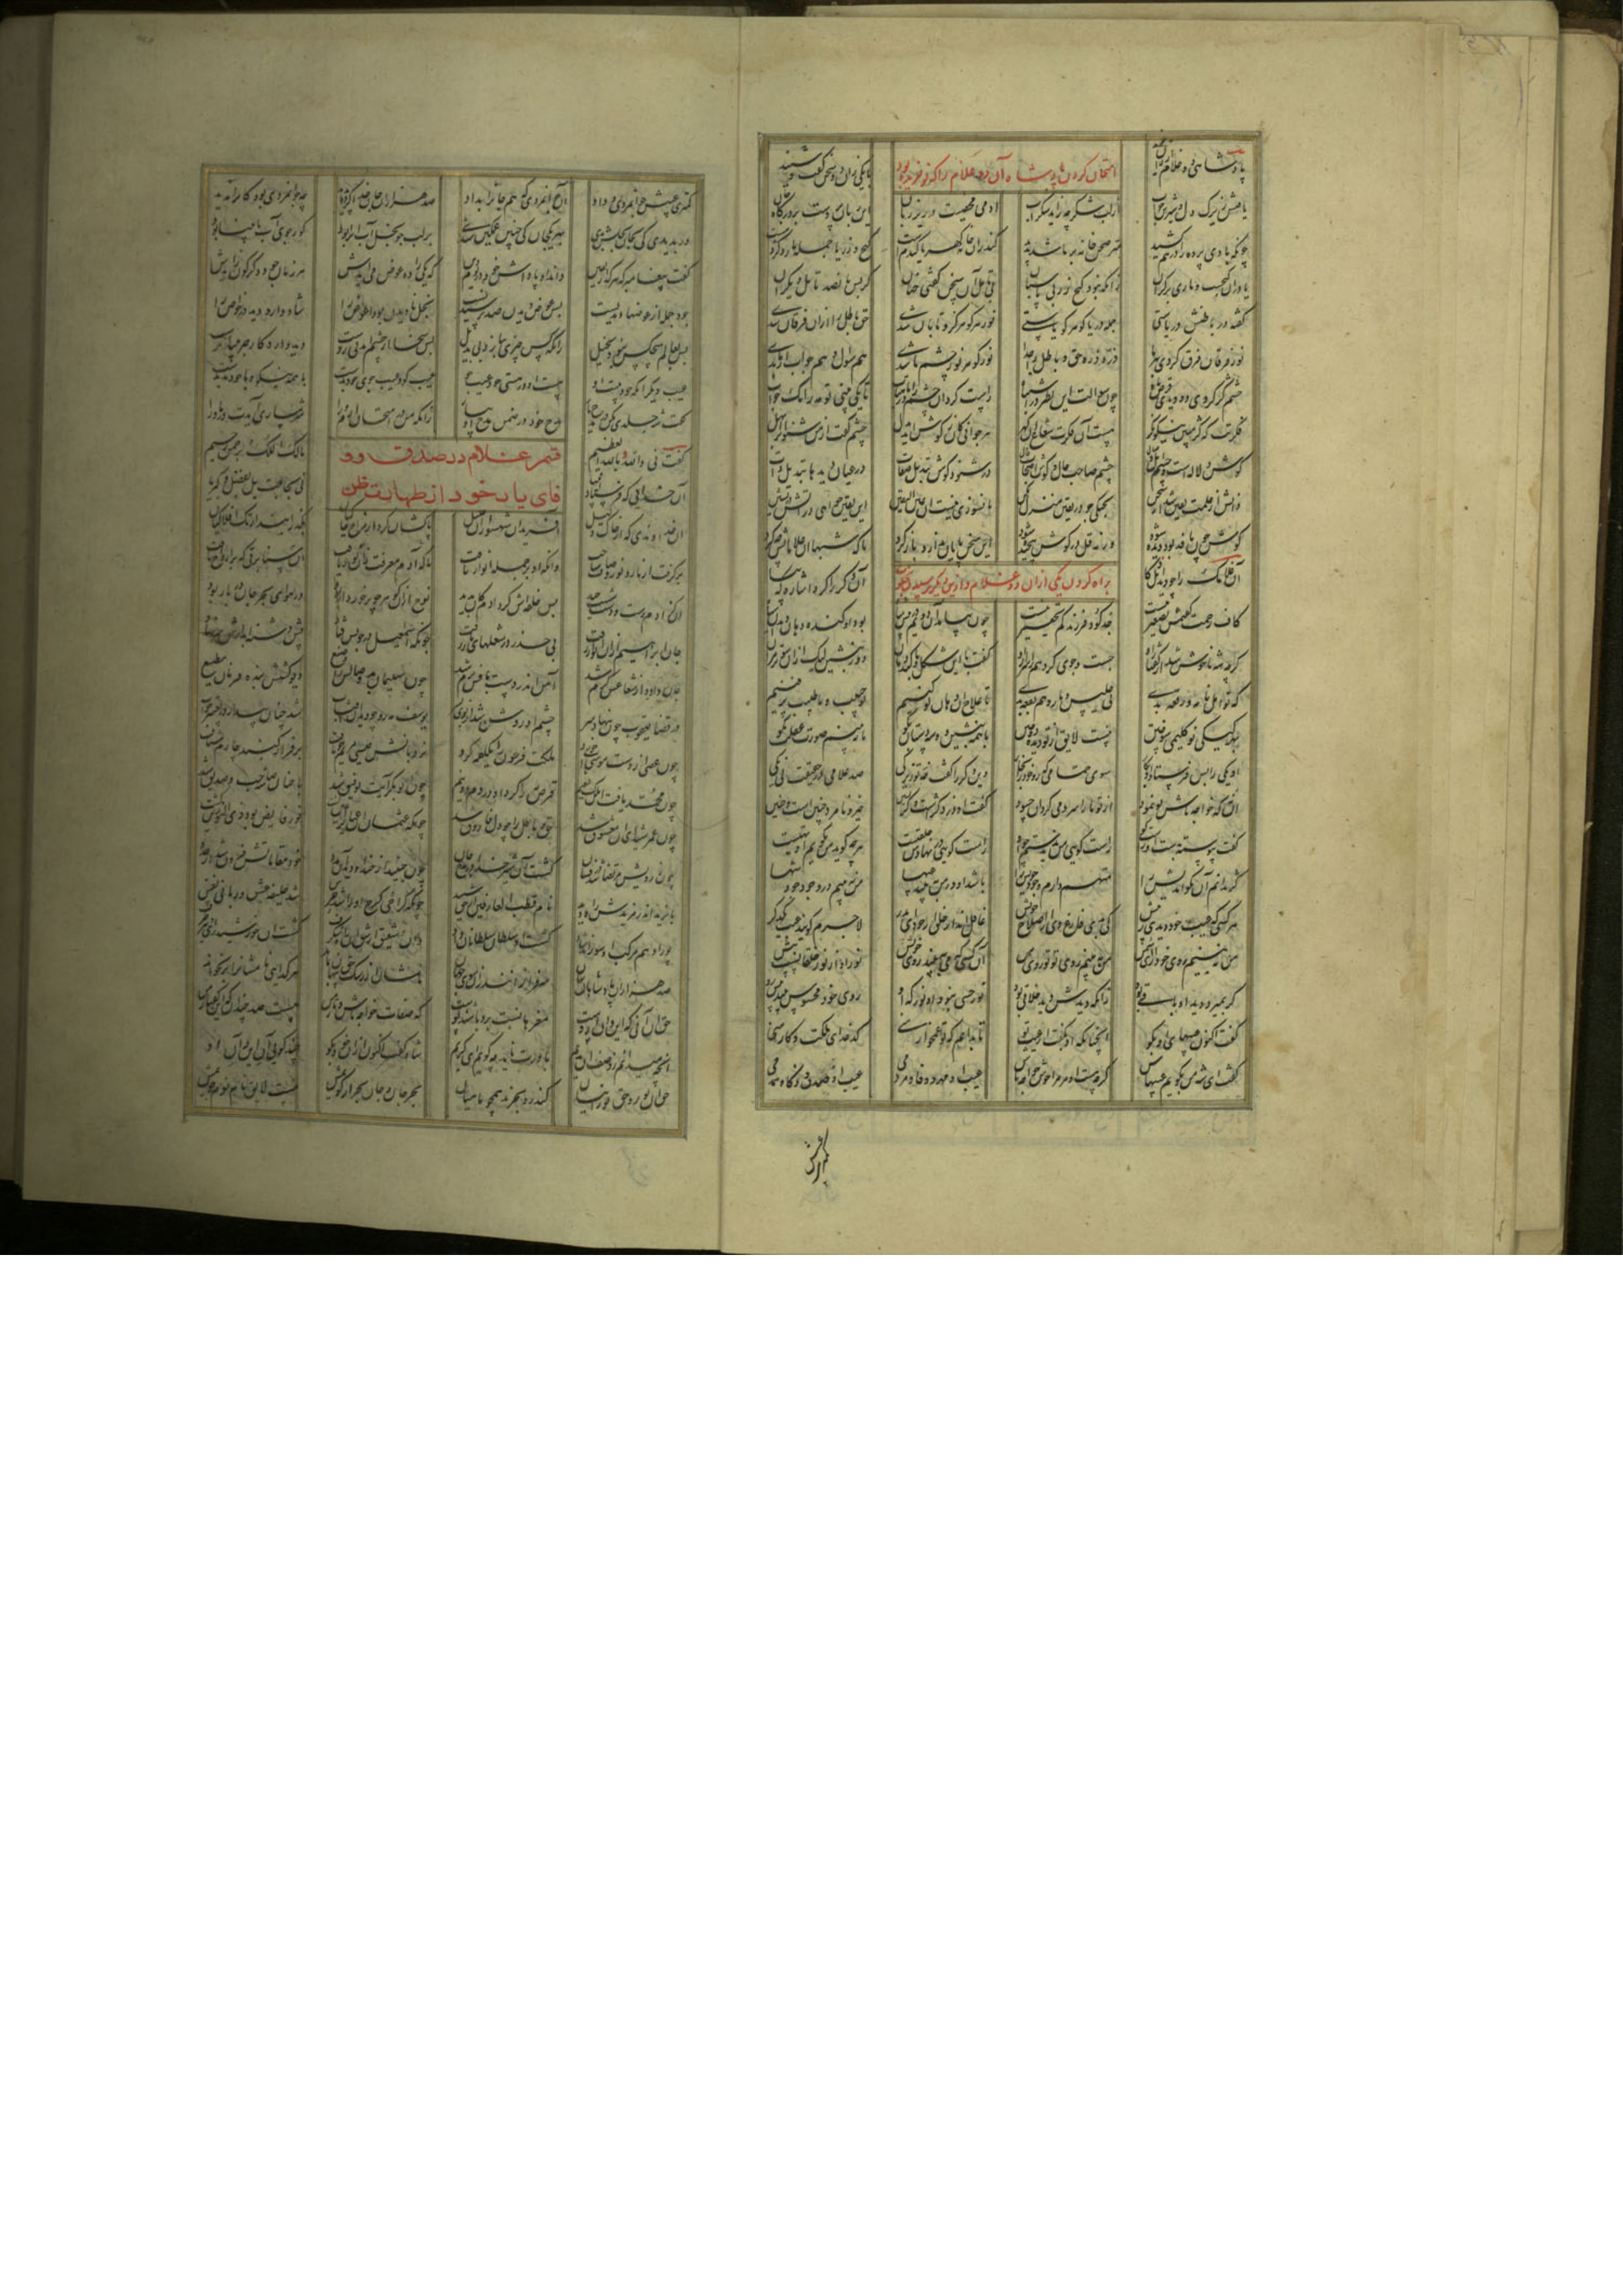 پادشاهی دو غلام ارزان خرید
امتحان کردن پادشاه آن دو غلام را که نو خریده بود
با یکی زان دو سخن گفت و شنید
یافتش زیرک دل و شیرین جواب از لب شکر چه زاید شکر آب آدمی مخفیست در زیر زبان این زبان پرده‌ست بر درگاه جان
چونکه بادی پرده را در هم کشید سر صحن خانه بر ما شد پدید کاندران خانه گهر یا گندم است گنج زر یا جمله مار و کژدم است
یا در آن گنجست و ماری بر کران زانکه نبود گنج زر بی پاسبان بی تامل آن سخن گفتی چنان کز پس پانصد تامل دیگران
گفته در باطنش دریاستی جمله دریا گوهر گویاستی نور هر گوهر کزو تابان شدی حق و باطل را از آن فرقان شدی
نور فرقان فرق کردی بهر ما ذره ذره حق و باطل را جدا نور گوهر نور چشم ما شدی هم سؤال و هم جواب از ما بدی
چشم کژ کردی دو دیدی قرص ماه چون سؤالست این نظر در اشتباه راست گردان چشم را در ماهتاب تا یکی بینی تو مه را نک جواب
فکرتت که کژ مبین نیکو نگر هست آن فکرت شعاع آن گهر هر جوابی کان ز گوش آید بدل چشم گفت از من شنو آن را بهل
گوش دلاله‌ست و چشم اهل وصال چشم صاحب حال و گوش اصحاب قال در شنود گوش تبدیل صفات در عیان دیدها تبدیل ذات
ز آتش ار علمت یقین شد از سخن پختگی جو در یقین منزل مکن تا نسوزی نیست آن عین الیقین این یقین خواهی در آتش در نشین
گوش چون نافذ بود دیده شود ورنه قل در گوش پیچیده شود این سخن پایان ندارد باز گرد تا که شه با آن غلامانش چه کرد
آن غلامک را چو دید اهل ذکا
براه کردن یکی از آن دو غلام و ازین دیگر پرسیدن
آن دگر را کرد اشارت که بیا
کاف رحمت گفتمش تصغیر نیست جد گود فرزندکم تحقیر نیست چون بیامد آن دوم در پیش شاه بود او گنده دهان دندان سیاه
گرچه شه ناخوش شد از گفتار او جست و جوی کرد هم ز اسرار او گفت با این شکل و این گند دهان دور بنشین لیک از آن سوتر مران
که تو اهل نامه و رقعه بدی نی جلیس و یار و هم بقعه بدی تا علاج آن دهان تو کنیم تو حبیب و ما طبیب پر فنیم
بهر کیکی نو گلیمی سوختن نیست لایق از تو دیده دوختن با همه بنشین دو سه دستان بگو تا ببینم صورت عقلت نکو
آن ذکی را پس فرستاد او بکار سوی حمامی که رو خود را بخار وین دگر را گفت خه تو زیرکی صد غلامی در حقیقت نی یکی
آن نه کان خواجه‌تاش تو نمود از تو ما را سرد می‌کرد آن حسود گفت او دزد و کژست و کژنشین حیز و نامرد و چنین است و چنین
گفت پیوسته بدست او راست گو راست گویی من ندیدستم چو او راست گویی در نهادش خلقتیست هرچه گوید من نگویم تهمتیست
کژ ندانم آن نکو اندیش را متهم دارم وجود خویش را باشد او در من ببیند عیبها من نبینم در وجود خود شها
هر کسی گر عیب خود دیدی ز پیش کی بدی فارغ وی از اصلاح خویش غافل‌اند این خلق از خود ای پدر لاجرم گویند عیب یکدگر
من نبینم روی خود را ای شمن من ببینم روی تو تو روی من آن کسی که او ببیند روی خویش نور او از نور خلقانست بیش
گر بمیرد دید او باقی بود زانکه دیدش دید خلاقی بود نور حسی نبود آن نوری که او روی خود محسوس بیند پیش رو
گفت اکنون عیبهای او بگو آنچنانکه او بگفت از عیب تو تا بدانم که تو غمخوار منی کدخدای ملکت و کار منی
گفت ای شه من بگویم عیبهاش گرچه هست او مر مرا خوش خواجه تاش عیب او مهر و وفا و مردمی عیب او صدق و ذکا و همدمی
کمترین
کمترین عیبش جوانمردی و داد آن جوانمردی که هم جان را بداد صد هزاران جان خدا کرده پدید چه جوانمردی بود کان را ندید
ور بدیدی کی بجان بخلش بدی بهر یک جان کی چنین غمگین شدی بر لب جو بخل آب آن را بود کو ز جوی آب نابینا بود
گفت پیغامبر که هر که از یقین داند او پاداش خود در یوم دین که یکی را ده عوض می‌آیدش هر زمان جود دگرگون زایدش
جود جمله از عوضها دیدنست پس عوض دیدن ضد ترسیدنست بخل نادیدن بود اعواض را شاد دارد دید در خواض را
پس بعالم هیچکس نبود بخیل زانکه کس چیزی نبازد بی بدیل پس سخا از چشم آمد نی ز دست دید دارد کار جز بینا نرست
عیب دیگر آنکه خودبین نیست او هست او در هستی خود عیب جو عیب گوی و عیب جوی خود بدست با همه نیکو و با خود بد بدست
گفت شه جلدی مکن در مدح یار مدح خود در ضمن مدح او میار زانکه من در امتحان آرم ورا شرمساری آیدت در ماورا
گفت نی والله و بالله العظیم
قسم غلام در صدق و وفای یار خود از طهارت ظن
مالک الملک و برحمن و رحیم
آن خدایی که فرستاد انبیا نی بحاجت بل بفضل و کبریا
آن خداوندی که از خاک ذلیل آفرید او شهسواران جلیل پاکشان کرد از مزاج خاکیان بگذرانید از تک افلاکیان
برگرفت از نار و نور صاف ساخت وانگه او بر جمله انوار تاخت تا که آدم معرفت زان نور یافت آن سنا برقی که بر ارواح تافت
آن کز آدم رست و دست شیث چید پس خلیفه‌اش کرد آدم کان بدید نوح از آن گوهر چو برخوردار بود در هوای بحر جان دربار بود
جان ابراهیم از آن انوار زفت بی حذر در شعلهای نار رفت چونکه اسمعیل در جویش فتاد پیش دشنه آبدارش سر نهاد
جان داود از شعاعش گرم شد آهن اندر دست بافش نرم شد چون سلیمان بد وصالش را رضیع دیو گشتش بنده فرمان و مطیع
در قضا یعقوب چون بنهاد سر چشم او روشن شد از بوی پسر یوسف مه‌رو چو دید آن آفتاب شد چنان بیدار در تعبیر خواب
چون عصا از دست موسی آب خورد ملکت فرعون را یک لقمه کرد نردبانش عیسی مریم چو یافت بر فراز گنبد چارم شتافت
چون محمد یافت آن ملک و نعیم قرص مه را کرد او در دم دو نیم چون ابوبکر آیت توفیق شد با چنان شه صاحب و صدیق شد
چون عمر شیدای آن معشوق شد حق و باطل را چو دل فاروق شد چونکه عثمان آن عیان را عین گشت نور فایض بود و ذی النورین گشت
چون ز رویش مرتضی شد درفشان گشت او شیر خدا در مرج جان چون جنید از جند او دید آن مدد خود مقاماتش فزون شد از عدد
بایزید اندر مزیدش راه دید نام قطب العارفین از حق شنید چونکه کرخی کرخ او را شد حرس شد خلیفه عشق و ربانی نفس
پور ادهم مرکب آن سو راند شاد گشت او سلطان سلطانان داد وان شقیق از شق آن راه شگرف گشت او خورشید رای و تیز طرف
صد هزاران پادشاهان نهان سر فرازانند زان سوی جهان نامشان از رشک حق پنهان بماند هر گدایی نامشان را بر نخواند
حق آن آنی که این و آن ازوست مغزها نسبت بدو باشند پوست که صفات خواجه تاش و یار من هست صد چندان که این گفتار من
آنچه میدانم ز وصف آن ندیم باورت ناید چه گویم ای کریم شاه گفت اکنون از آن خود بگو چند گویی آن این و آن او
حق آن نور و حق نورانیان کاندر آن بحرند همچون ماهیان بحر جان و جان بحر ار گویمش نیست لایق نام نو می‌جویمش